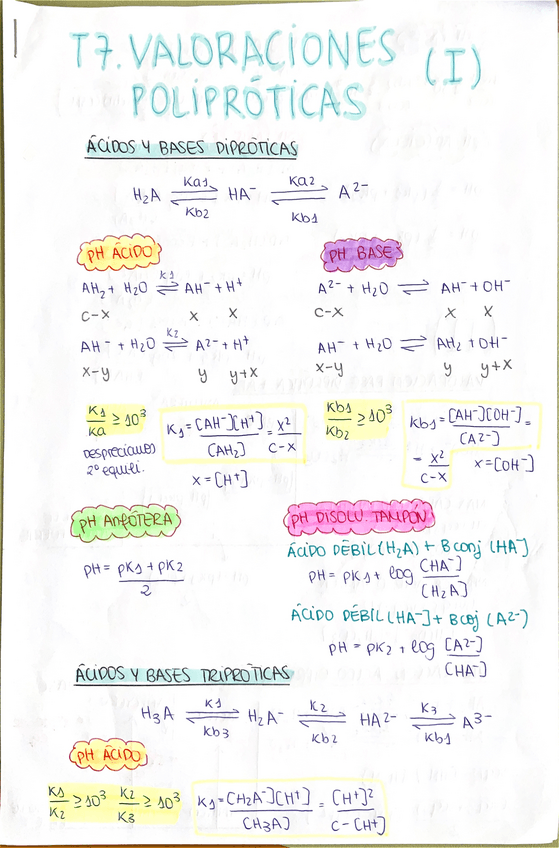 T7. VALORACIONES (I)
POLIPRÓTICAS
ÁCIDOS Y BASES DIPRÓTICAS
H₂A ⇌ HA⁻ ⇌ A²⁻
Ka1 Ka2
Kb2 Kb1
PH ÁCIDO
AH₂ + H₂O ⇌ AH⁻ + H⁺
K1
C-X X X
AH⁻ + H₂O ⇌ A²⁻ + H⁺
K2
X-Y Y Y+X
K1/Ka ≥ 10³
DESPRECIAMOS
2º equili.
K1 = [AH⁻][H⁺]/[AH₂] = X²/C-X
X = [H⁺]
PH BASE
A²⁻ + H₂O ⇌ AH⁻ + OH⁻
C-X X X
AH⁻ + H₂O ⇌ AH₂ + OH⁻
X-Y Y Y+X
Kb1/Kb2 ≥ 10³
Kb1 = [AH⁻][OH⁻]/[A²⁻] =
= X²/C-X X = [OH⁻]
PH ANFÓTERA
PH = PK1 + PK2/2
PH DISOLU. TAMPÓN
ÁCIDO DÉBIL (H₂A) + B conj [HA⁻]
PH = PK1 + log [HA⁻]/[H₂A]
ÁCIDO DÉBIL [HA⁻] + B coj [A²⁻)
PH = PK2 + log [A²⁻]/[HA⁻]
ÁCIDOS Y BASES TRIPRÓTICAS
H₃A ⇌ H₂A⁻ ⇌ HA²⁻ ⇌ A³⁻
K1 K2 K3
Kb3 Kb2 Kb1
PH ÁCIDO
K1/K2 ≥ 10³ K2/K3 ≥ 10³
K1 = [H₂A⁻][H⁺]/[H₃A] = [H⁺]²/C-[H⁺]